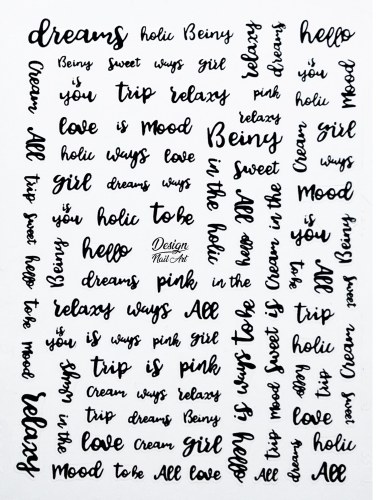 dreams holic Beiny
relaxy
dreams
hello
Beiny sweet ways girl
is
you
Mood
Cream
is
you trip relaxy
pink
holic
relaxy
love is mood
Beiny
Cream
girl
All
holic ways love
sweet
ways
girl dreams ways
in the holic
All
hello
Cream in the
mood
trip sweet hello to be mood
is
you holic to be
is
you
Beiny
Beiny
hello
Design
Nail Art
to be
All
sweet
dreams pink in the
relaxy ways All
trip
is
you is ways pink girl
hello is ways to be
trip mood sweet is
holic
Cream
ways
trip is pink
hello
trip
Cream ways relaxy
relaxy
in the
trip dreams Beiny
love
sweet
love cream girl
dreams
holic
Mood to be All love
All
All